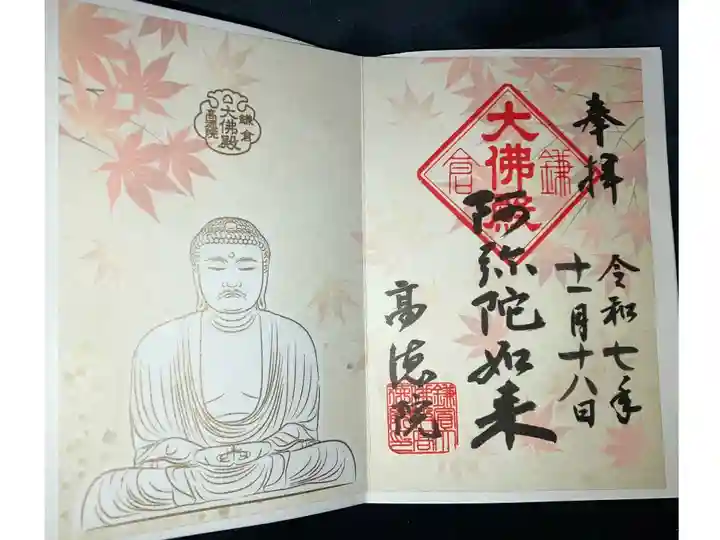 奉拝
令和七年
十一月十八日
大佛殿
鎌倉
阿弥陀如来
高徳院
鎌倉
大佛殿
高徳院